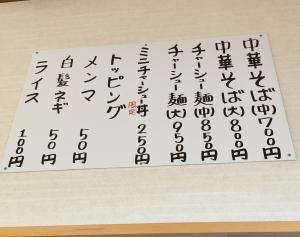 中華そば(中)700円
中華そば(大)800円
チャーシュー麺(中)850円
チャーシュー麺(大)950円
ミニチャーシュー丼 限定 250円
トッピング
メンマ 50円
白髪ネギ 50円
ライス 100円